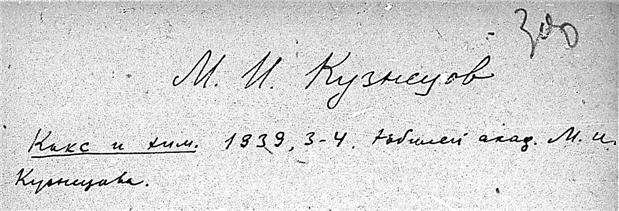 М. И. Кузнецов
Кокс и хим. 1939, 3-4. Юбилей акад. М. И.
Кузнецова.